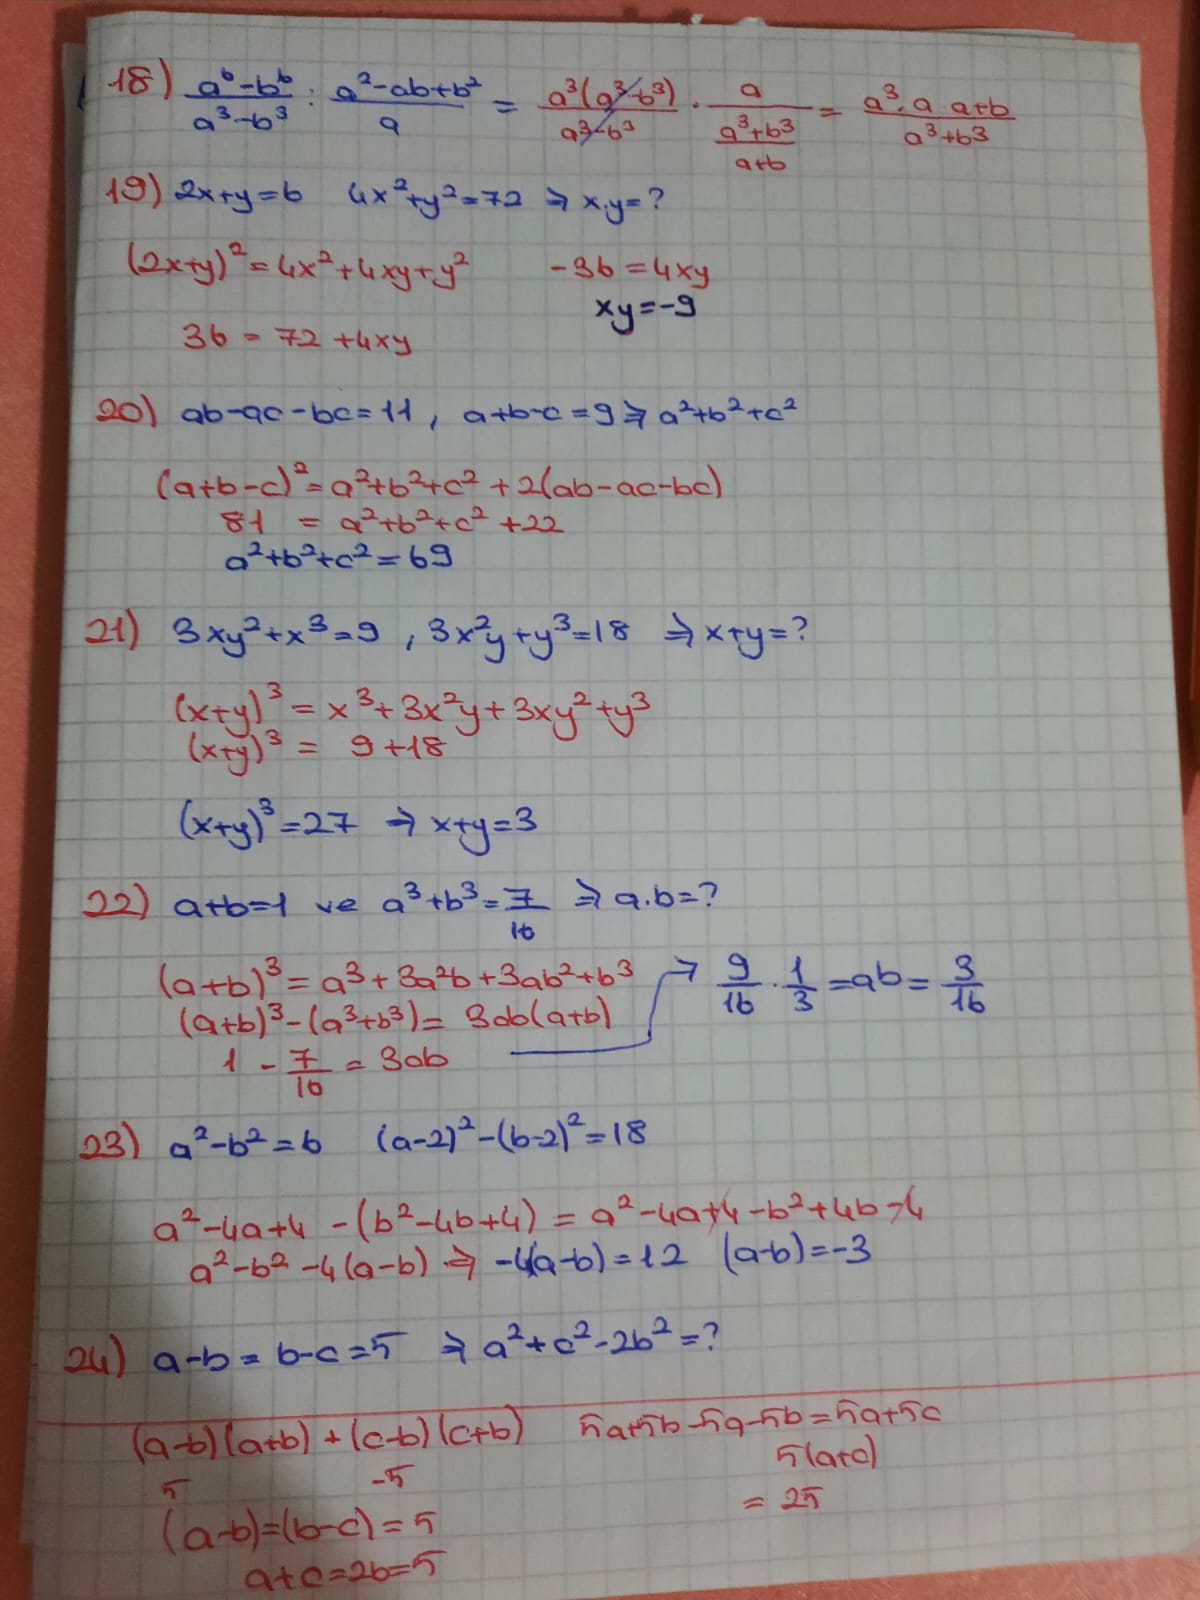 18) (a⁶-b⁶)/(a³-b³) : (a²-ab+b²)/a = a³(a³-b³)/(a³-b³) · a/((a³+b³)/(a+b)) = (a³·a·a+b)/(a³+b³)
19) 2x+y=6 4x²+y²=72 ⇒ x.y=?
(2x+y)²=4x²+4xy+y² -36=4xy
xy=-9
36 = 72+4xy
20) ab-ac-bc=11, a+b-c=9 ⇒ a²+b²+c²
(a+b-c)²=a²+b²+c²+2(ab-ac-bc)
81 = a²+b²+c²+22
a²+b²+c²=69
21) 3xy²+x³=9, 3x²y+y³=18 ⇒ x+y=?
(x+y)³=x³+3x²y+3xy²+y³
(x+y)³= 9+18
(x+y)³=27 ⇒ x+y=3
22) a+b=1 ve a³+b³=7/16 ⇒ a.b=?
(a+b)³=a³+3a²b+3ab²+b³ → 9/16 · 1/3 =ab= 3/16
(a+b)³-(a³+b³)= 3ab(a+b)
1 - 7/16 = 3ab
23) a²-b²=6 (a-2)²-(b-2)²=18
a²-4a+4 -(b²-4b+4) = a²-4a+4-b²+4b-4
a²-b²-4(a-b) ⇒ -4(a-b)=12 (a-b)=-3
24) a-b= b-c=5 ⇒ a²+c²-2b²=?
(a-b)(a+b)+(c-b)(c+b) 5a+5b-5a-5b=5a+5c
5 -5 5(a+c)
= 25
(a-b)=(b-c)=5
a+c=2b=5